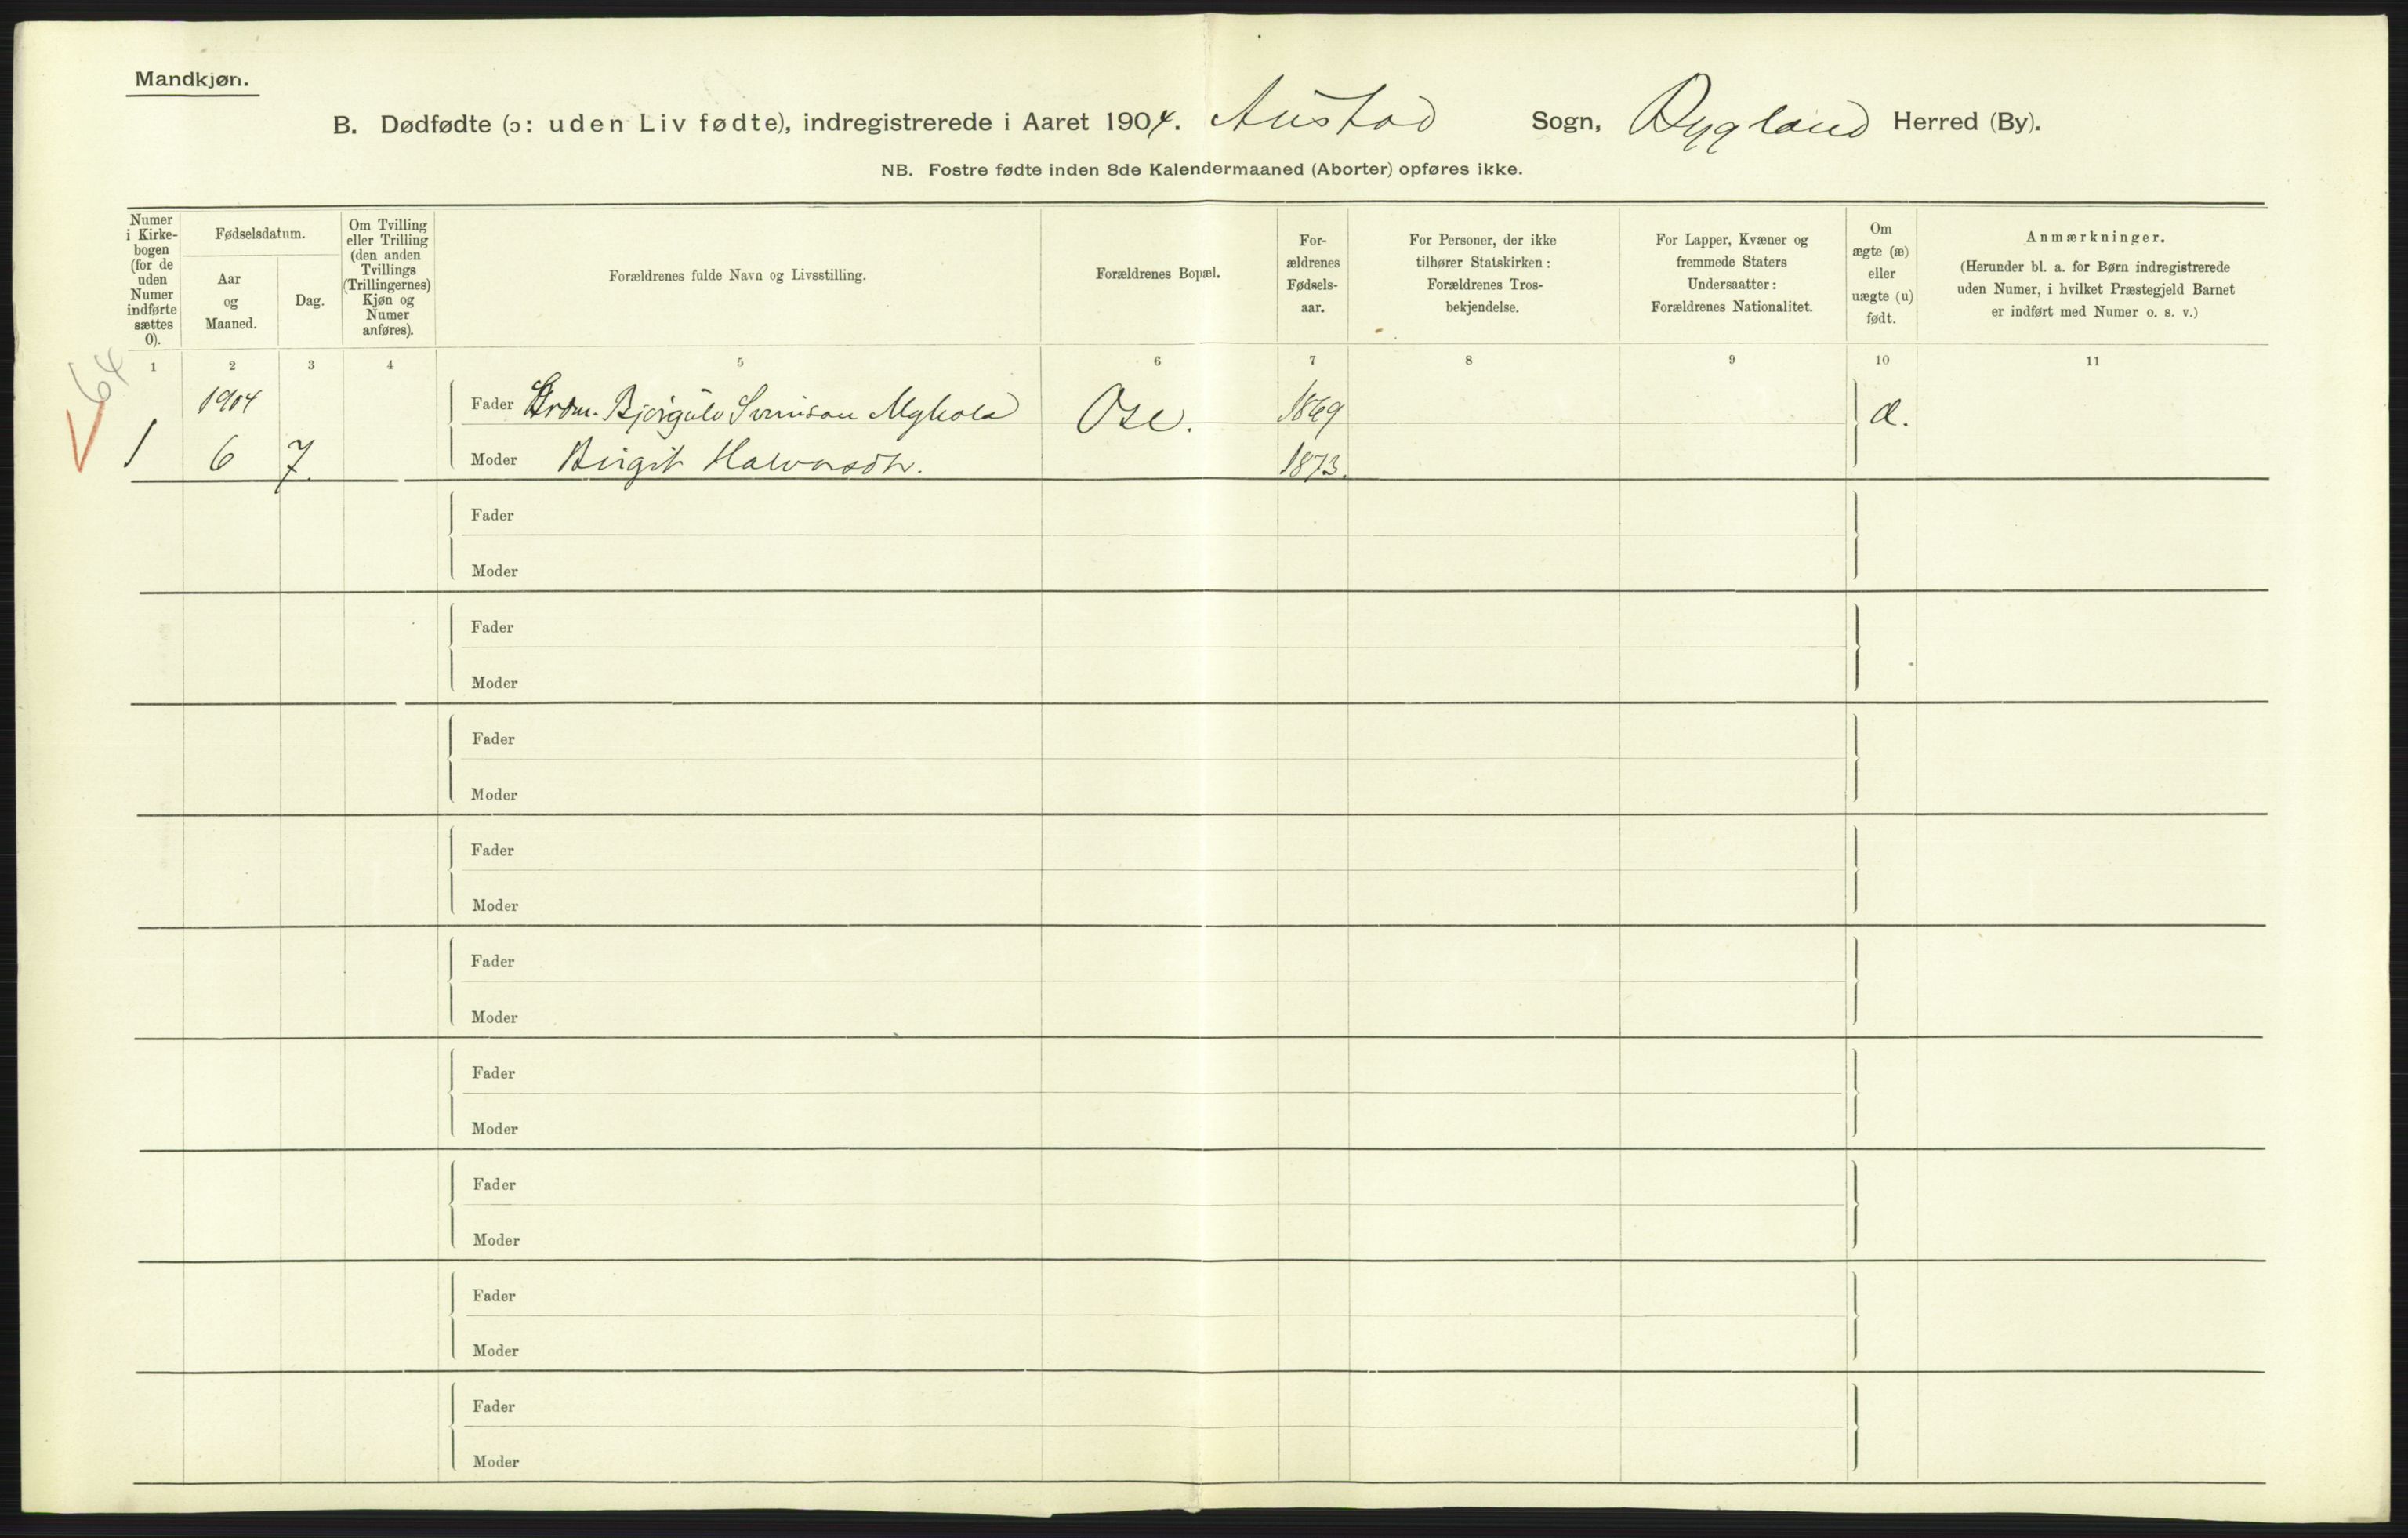 Mandkjøn.
B. Dødfødte (ɔ: uden Liv fødte), indregistrerede i Aaret 1904. Austad Sogn, Bygland Herred (By).
NB. Fostre fødte inden 8de Kalendermaaned (Aborter) opføres ikke.
Numer i Kirke-bogen (for de uden Numer indførte sættes 0).
Fødselsdatum.
Aar og Maaned.
Dag.
Om Tvilling eller Trilling (den anden Tvillings (Trillingernes) Kjøn og Numer anføres).
Forældrenes fulde Navn og Livsstilling.
Forældrenes Bopæl.
For-ældrenes Fødsels-aar.
For Personer, der ikke tilhører Statskirken: Forældrenes Tros-bekjendelse.
For Lapper, Kvæner og fremmede Staters Undersaatter: Forældrenes Nationalitet.
Om ægte (æ) eller uægte (u) født.
Anmærkninger.
(Herunder bl. a. for Børn indregistrerede uden Numer, i hvilket Præstegjeld Barnet er indført med Numer o. s. v.)
1 2 3 4 5 6 7 8 9 10 11
64
1904 Fader Bjørgulv Ose. 1869 æ.
1 6 7. Moder Birgit Halvorsdtr. 1873.
Fader
Moder
Fader
Moder
Fader
Moder
Fader
Moder
Fader
Moder
Fader
Moder
Fader
Moder
Fader
Moder
Fader
Moder